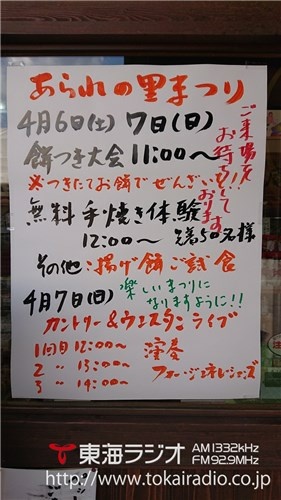 あられの里まつり
4月6日(土) 7日(日)
ご来場を
お待ちして
おります
餅つき大会 11:00〜
※つきたてお餅でぜんざい!!
無料 手焼き体験
12:00〜 先着50名様
その他:揚げ餅ご試食
4月7日(日)
楽しいまつりに
なりますように!!
カントリー&ウエスタンライブ
1回目 12:00〜 演奏
2 〃 13:00〜 フォー・ジェネレーションズ
3 〃 14:00〜
東海ラジオ AM1332kHz
FM92.9MHz
http://www.tokairadio.co.jp